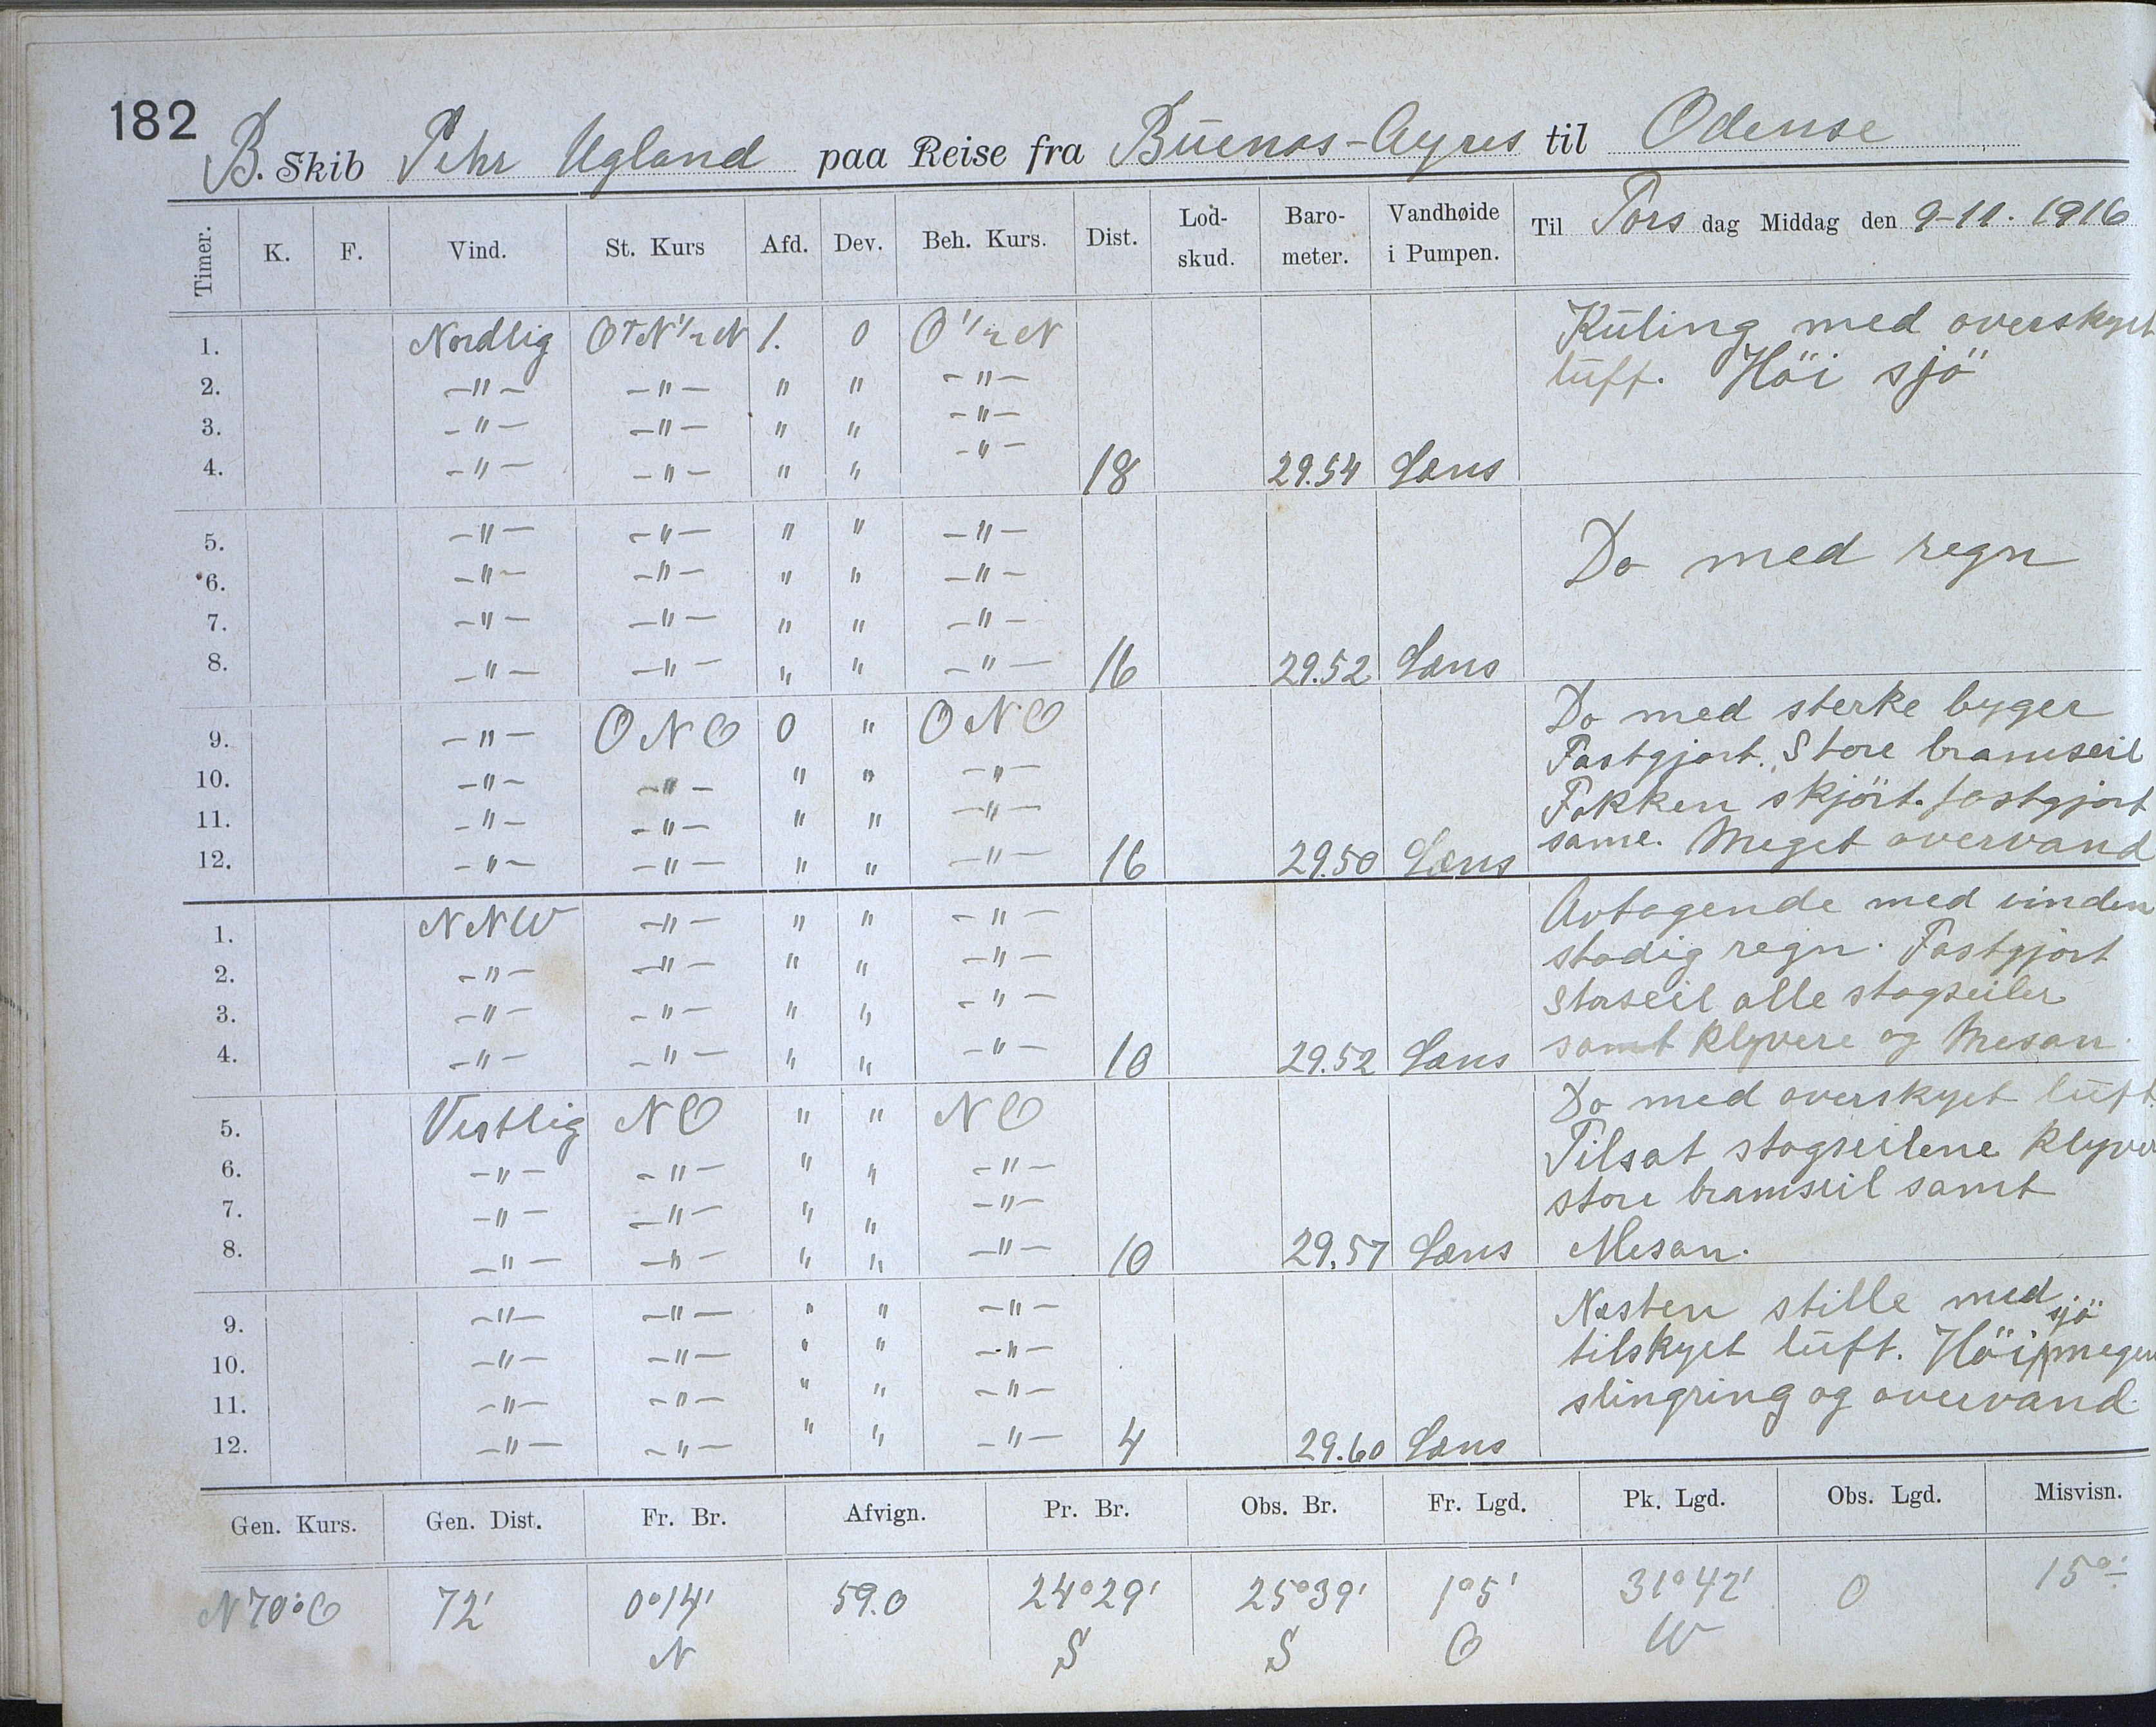 182
B. Skib Pehr Ugland paa Reise fra Buenos-Ayres til Odense
Timer. K. F. Vind. St. Kurs Afd. Dev. Beh. Kurs. Dist. Lod-skud. Baro-meter. Vandhøide i Pumpen. Til Torsdag Middag den 9-11. 1916
1. Nordlig OTN 1/2 N 1. 0 O 1/2 N Kuling med overskyet
2. -"- -"- " " -"- luft. Höi sjö
3. -"- -"- " " -"-
4. -"- -"- " " -"- 18 29.54 Læns
5. -"- -"- " " -"- Do med regn
6. -"- -"- " " -"-
7. -"- -"- " " -"-
8. -"- -"- " " -"- 16 29.52 Læns
9. -"- ONO 0 " ONO Do med sterke byger
10. -"- -"- " " -"- Fastgjort. Store bramseil
11. -"- -"- " " -"- Fokken skjört. fastgjort
12. -"- -"- " " -"- 16 29.50 Læns same. Meget overvand
1. NNW -"- " " -"- Avtagende med vinden
2. -"- -"- " " -"- stadig regn. Fastgjort
3. -"- -"- " " -"- Storseil alle stagseiler
4. -"- -"- " " -"- 10 29.52 Læns samt klyvere og Mesan.
5. Vestlig NO " " NO Do med overskyet luft.
6. -"- -"- " " -"- Tilsat stagseilene klyver
7. -"- -"- " " -"- store bramseil samt
8. -"- -"- " " -"- 10 29.57 Læns Mesan.
9. -"- -"- " " -"- Næsten stille med
10. -"- -"- " " -"- tilskyet luft. Höi sjö megen
11. -"- -"- " " -"- slingring og overvand.
12. -"- -"- " " -"- 4 29.60 Læns
Gen. Kurs. Gen. Dist. Fr. Br. Afvign. Pr. Br. Obs. Br. Fr. Lgd. Pk. Lgd. Obs. Lgd. Misvisn.
N 70° O 72' 0°14' 59.0 24°29' 25°39' 1°5' 31°42' 0 15°-
N S S O W